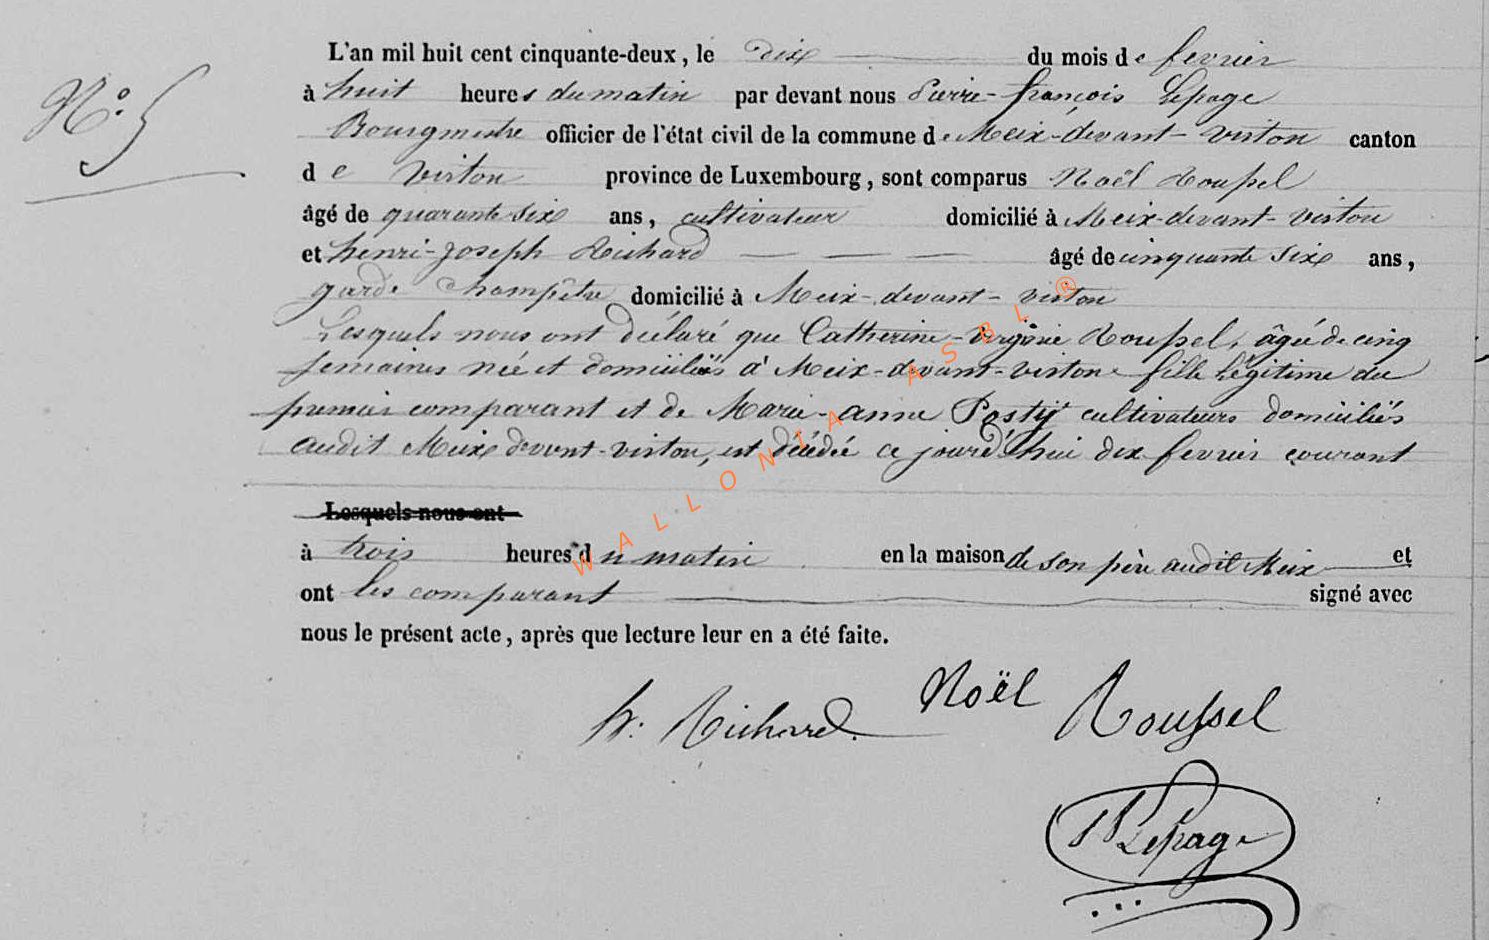 N.° 5
L'an mil huit cent cinquante-deux, le dix du mois de fevrier
à huit heures du matin par devant nous Pierre-françois Lepage
Bourgmestre officier de l'état civil de la commune de Meix-devant-virton canton
de virton province de Luxembourg, sont comparus Noël Roussel
âgé de quarante six ans, cultivateur domicilié à Meix-devant-virton
et henri-joseph Richard âgé de cinquante six ans,
garde champêtre domicilié à Meix-devant-virton
Lesquels nous ont déclaré que Catherine-virginie Roussel, âgée de cinq
semaines née et domiciliés à Meix-devant-virton fille légitime du
premier comparant et de Marie-anne Postij cultivateurs domiciliés
audit Meix devant-virton, est décédée ce jourd'hui dix fevrier courant
Lesquels nous ont
à trois heures du matin en la maison de son père audit Meix et
ont les comparant signé avec
nous le présent acte, après que lecture leur en a été faite.
h. Richard. Noël Roussel
Lepage
WALLONIA ASBL ®